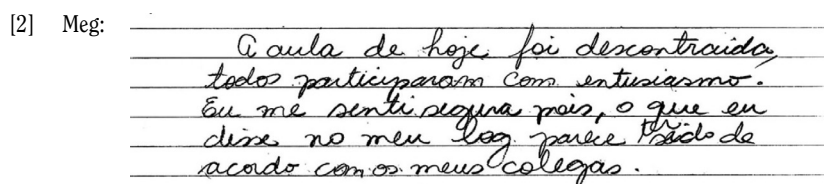 [2] Meg:
A aula de hoje foi descontraida,
todos participaram com entusiasmo.
Eu me senti segura pois, o que eu
disse no meu log parece ter sido de
acordo com os meus colegas.